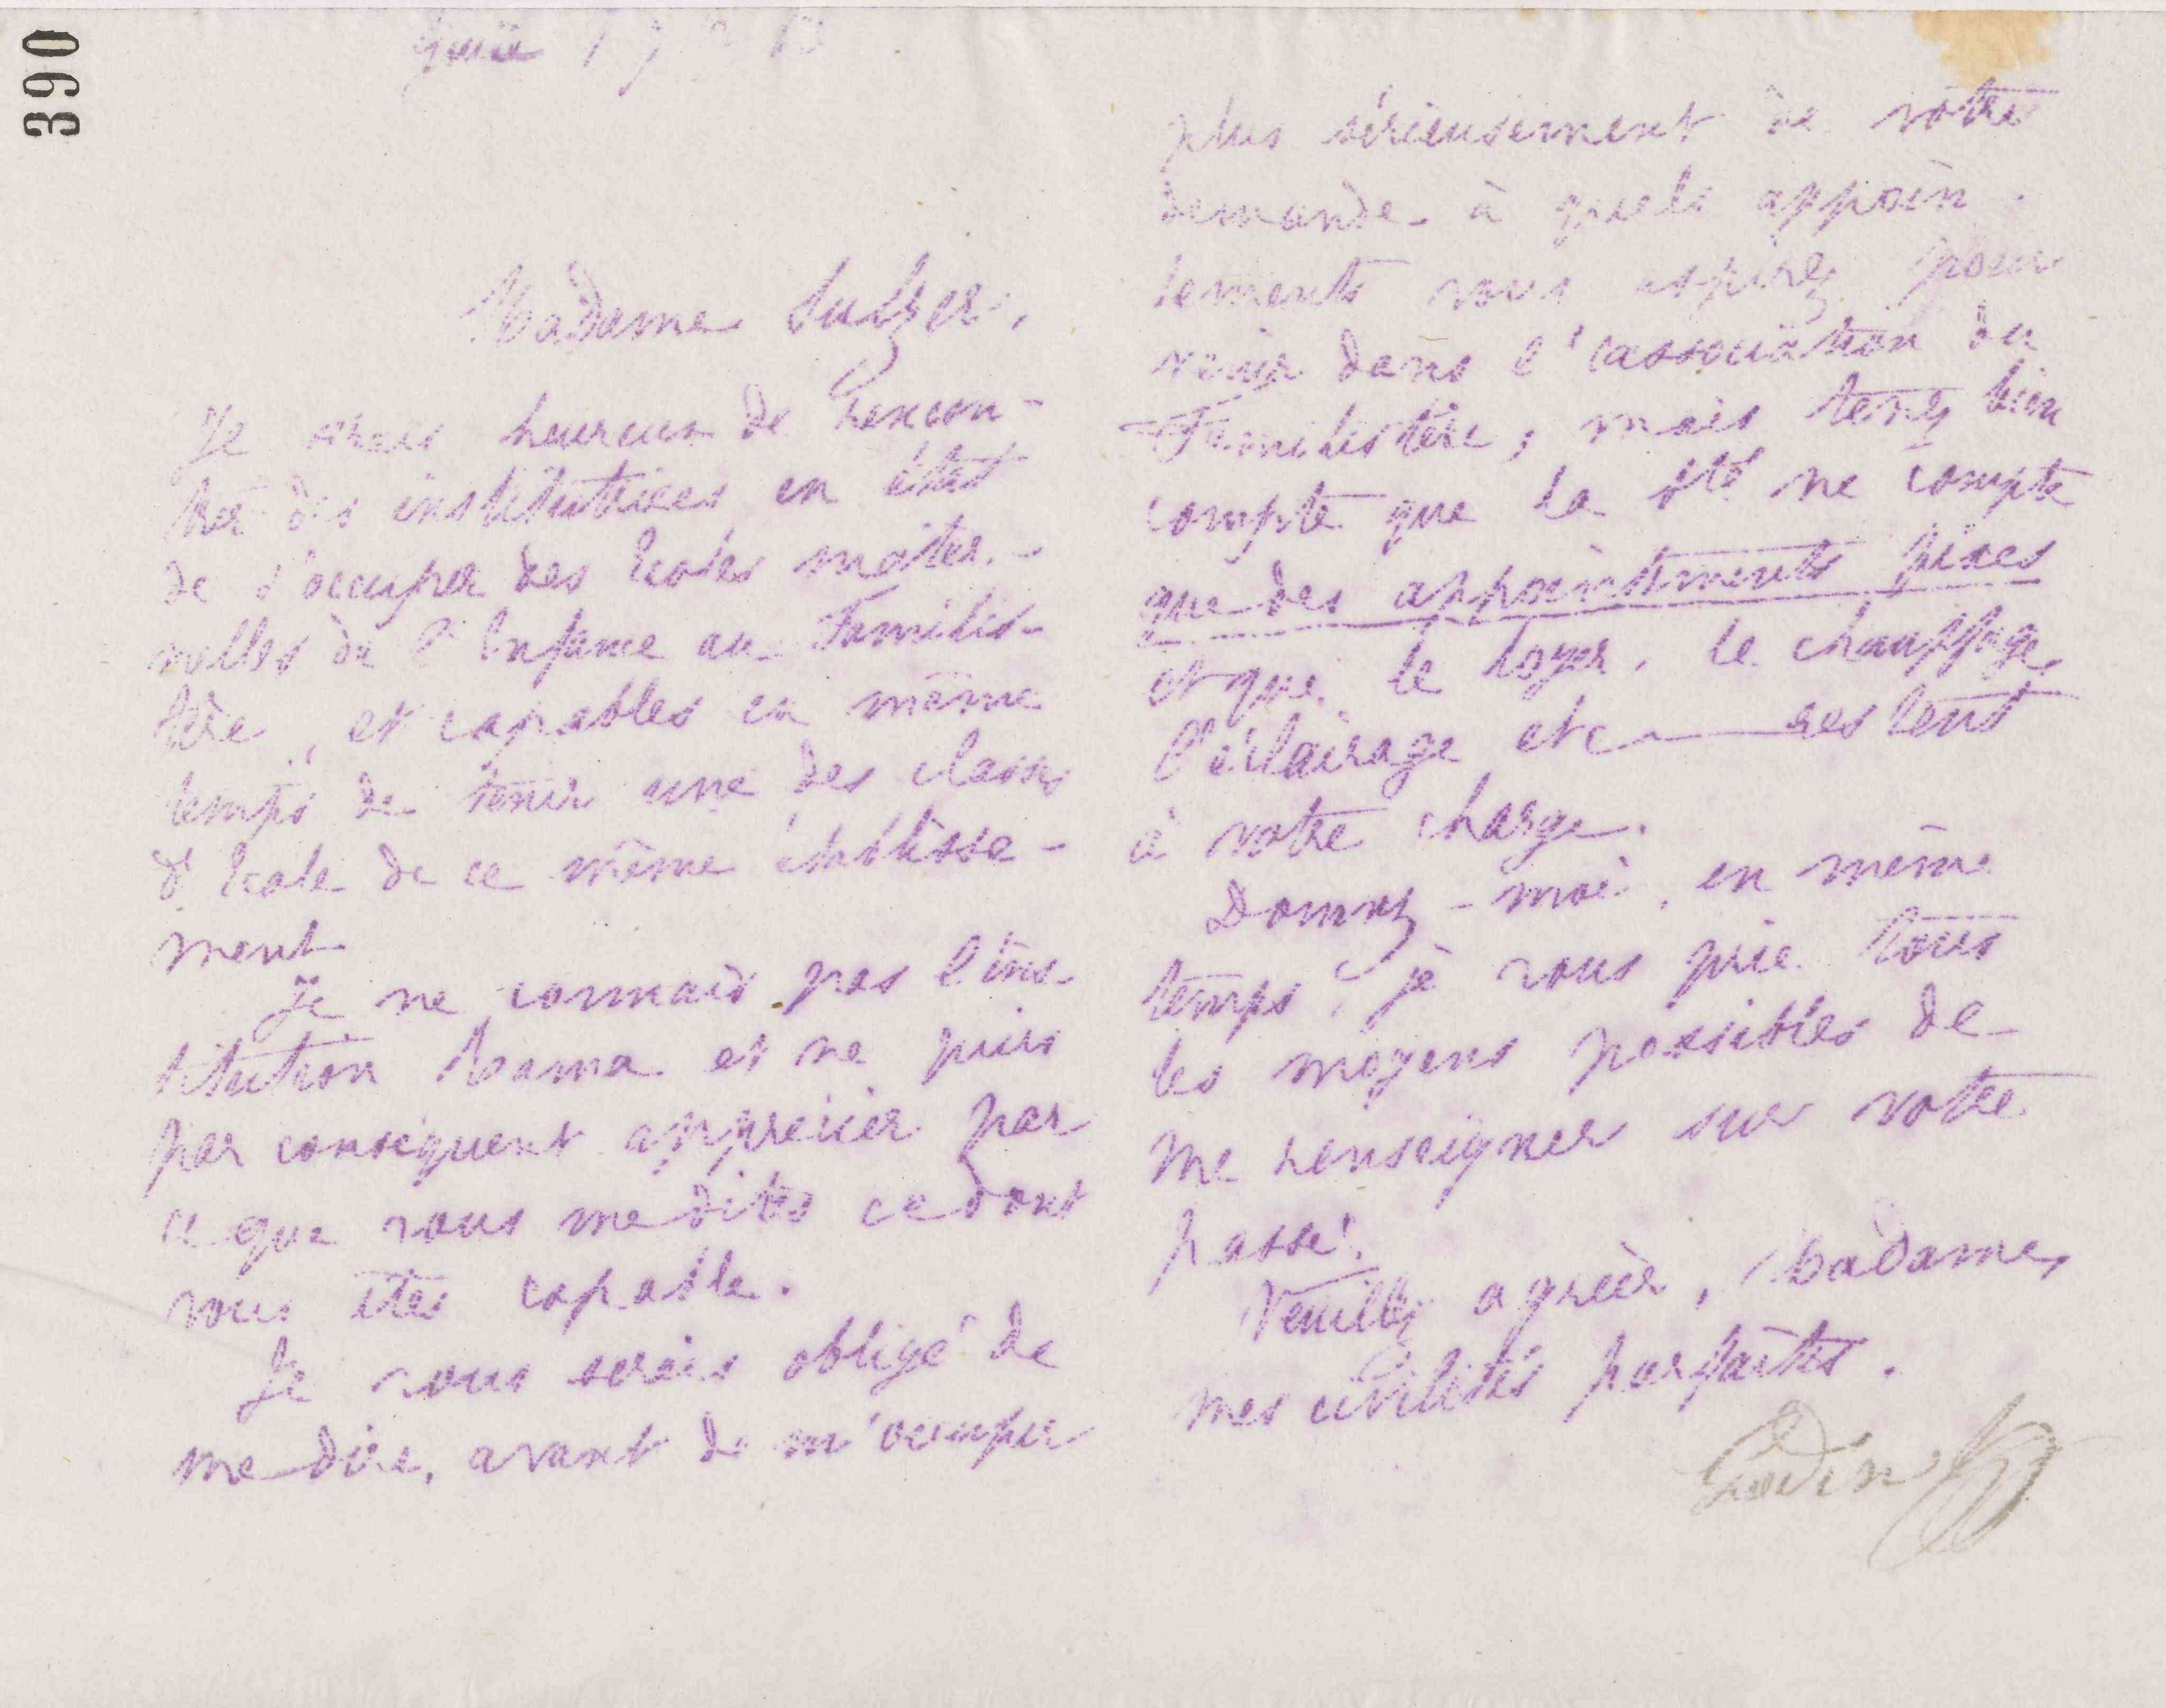 390
Guise
Madame Sulzer,
Je serais heureux de rencon-
trer des institutrices en état
de s'occuper des Ecoles mater-
nelles de l'Enfance au Familis-
tère, et capables en même
temps de tenir une des classes
d'Ecole de ce même établisse-
ment.
Je ne connais pas l'ins-
titution et ne puis
par conséquent apprécier par
ce que vous me dites ce dont
vous êtes capable.
Je vous serais obligé de
me dire, avant de m'occuper
plus sérieusement de votre
demande à quels appoin-
tements vous aspirez pour
venir dans l'association du
Familistère, mais tenez bien
compte que la Sté ne compte
que des appointements fixes
et que le loyer, le chauffage,
l'éclairage etc restent
à votre charge.
Donnez-moi, en même
temps, je vous prie tous
les moyens possibles de
me renseigner sur votre
passé.
Veuillez agréer, Madame,
mes civilités parfaites.
Godin